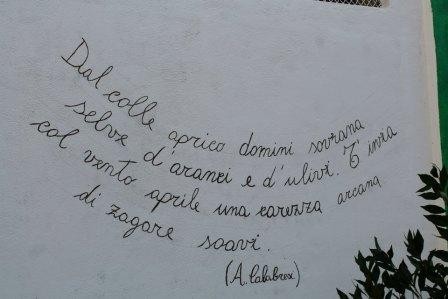 Dal colle aprico domini sovrana
selve d'aranci e d'ulivi. T'invia
col vento aprile una carezza arcana
di zagare soavi.
(A. Calabrex)